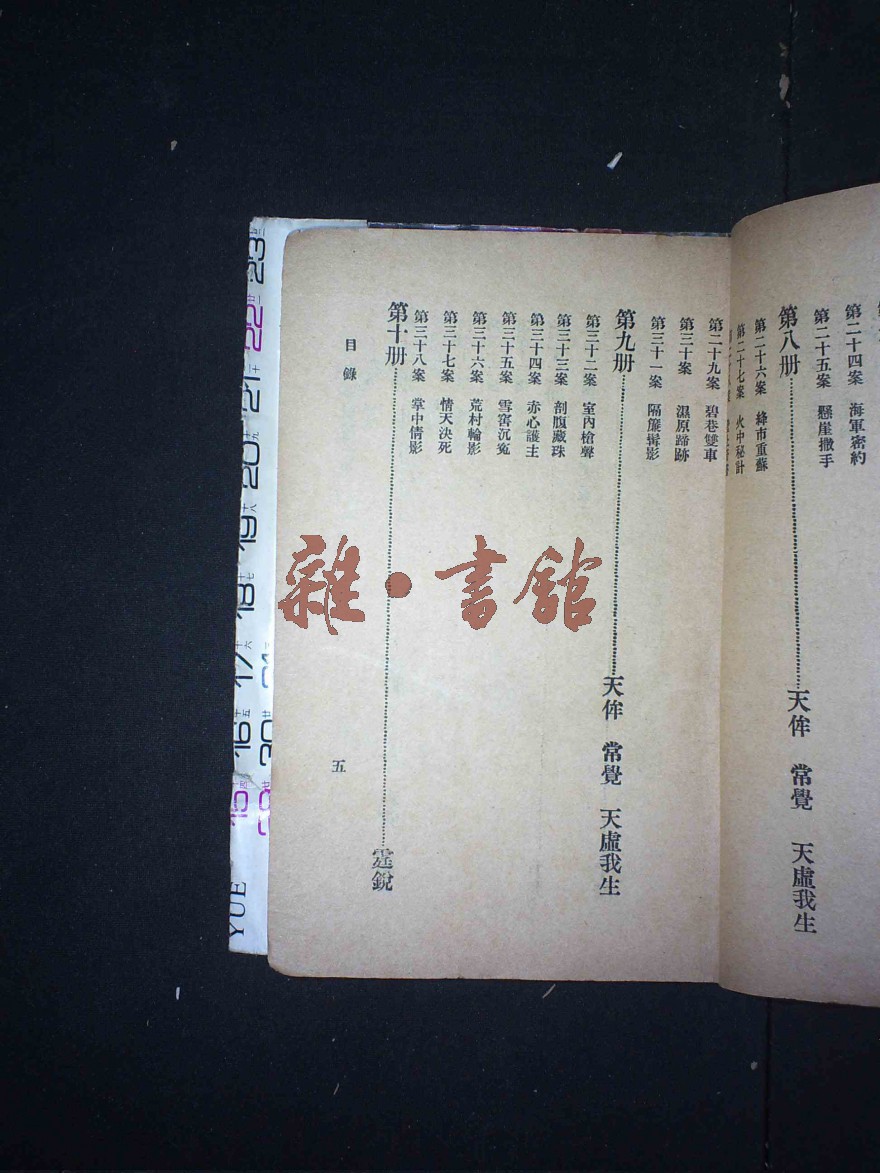 第二十四案　海軍密約
第二十五案　懸崖撒手
第八册……天侔　常覺　天虛我生
第二十六案　絳市重蘇
第二十七案　火中秘計
第二十九案　碧巷雙車
第三十案　濕原蹄跡
第三十一案　隔簾髯影
第九册……天侔　常覺　天虛我生
第三十二案　室內槍聲
第三十三案　剖腹藏珠
第三十四案　赤心護主
第三十五案　雪窖沉冤
第三十六案　荒村輪影
第三十七案　情天決死
第三十八案　掌中倩影
第十册……霆銳
目錄
五
雜·書館
23
22
21
20
19
18
17
16
15
30
YUE